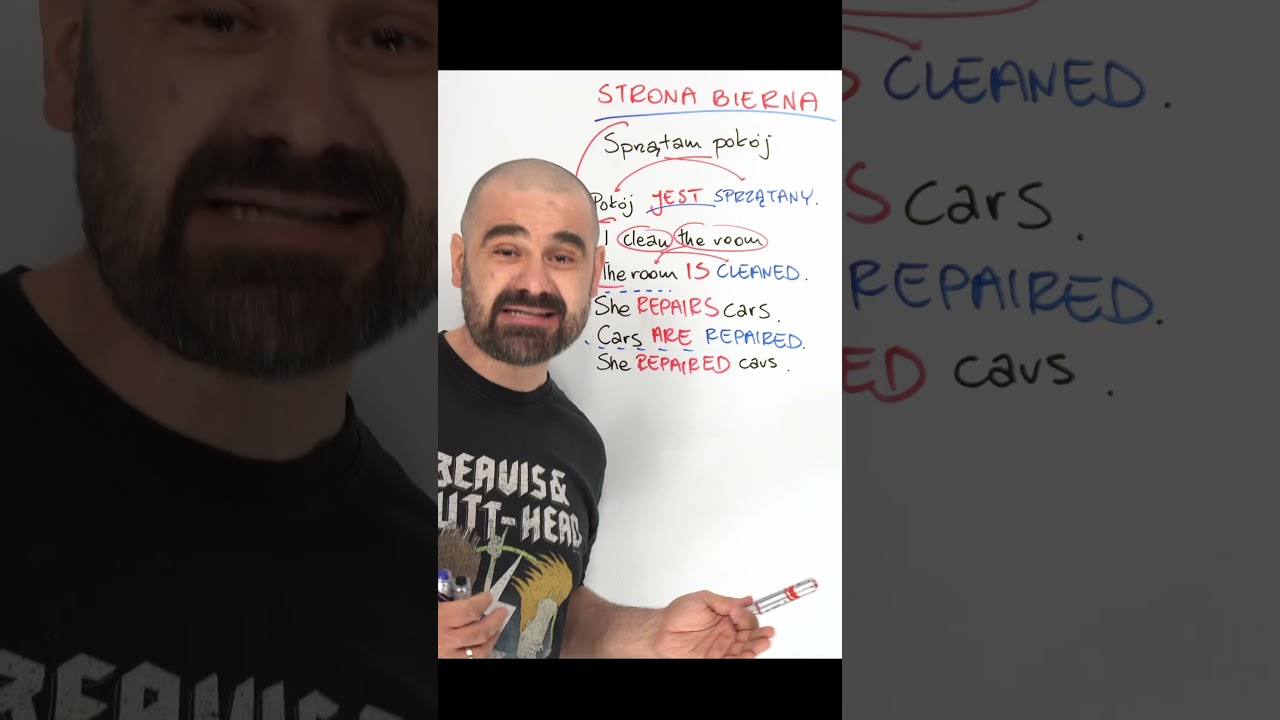 STRONA BIERNA
Sprzątam pokój
Pokój JEST SPRZĄTANY.
I clean the room
The room IS CLEANED.
She REPAIRS cars.
Cars ARE REPAIRED.
She REPAIRED cars.
BEAVIS &
BUTT-HEAD
CLEANED.
S cars.
REPAIRED.
ED cars.
BEAVIS